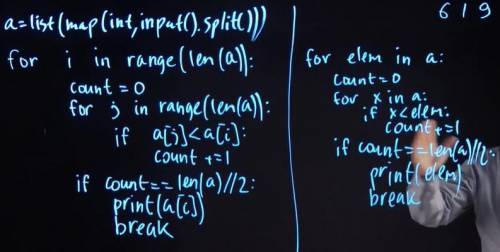 a=list(map(int,input().split()))
for i in range(len(a)):
count=0
for j in range(len(a)):
if a[j]<a[i]:
count+=1
if count==len(a)//2:
print(a[i])
break
6 1 9
for elem in a:
count=0
for x in a:
if x<elem:
count+=1
if count==len(a)//2:
print(elem)
break